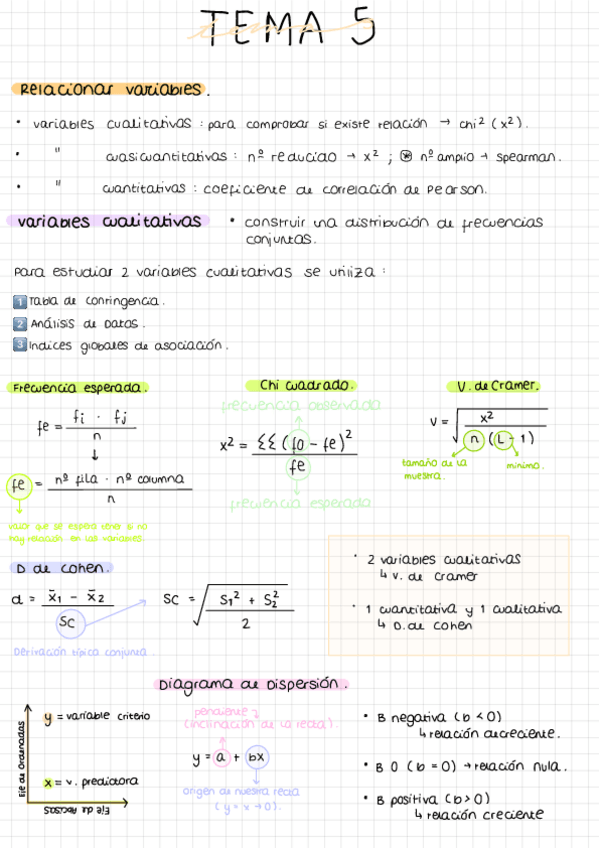 TEMA 5
Relacionar variables.
• variables cualitativas : para comprobar si existe relación → chi² (x²).
• " cuasicuantitativas : nº reducido → x² ; ⊛ nº amplio → spearman.
• " cuantitativas : coeficiente de correlación de Pearson.
variables cualitativas • construir una distribución de frecuencias
conjuntas.
Para estudiar 2 variables cualitativas se utiliza :
1 Tabla de contingencia.
2 Análisis de Datos.
3 Indices globales de asociación.
Frecuencia esperada.
fe = fi · fj / n
↓
fe = nº fila · nº columna / n
valor que se espera tener si no
hay relación en las variables.
Chi cuadrado.
frecuencia observada
x² = ƸƸ (fo - fe)² / fe
frecuencia esperada
V. de Cramer.
V = √ x² / n (L - 1)
tamaño de la
muestra.
mínimo.
D de Cohen.
d = x̄1 - x̄2 / SC
SC = √ S1² + S2² / 2
Derivación típica conjunta.
• 2 variables cualitativas
↳ V. de Cramer
• 1 cuantitativa y 1 cualitativa
↳ D. de Cohen
Diagrama de Dispersión.
Eje de Ordenadas
y = variable criterio
x = v. predictora
Eje de Abcisas
pendiente
(inclinación de la recta).
y = a + bx
origen de nuestra recta
(y = x → 0).
• B negativa (b < 0)
↳ relación decreciente.
• B 0 (b = 0) → relación nula.
• B positiva (b > 0)
↳ relación creciente